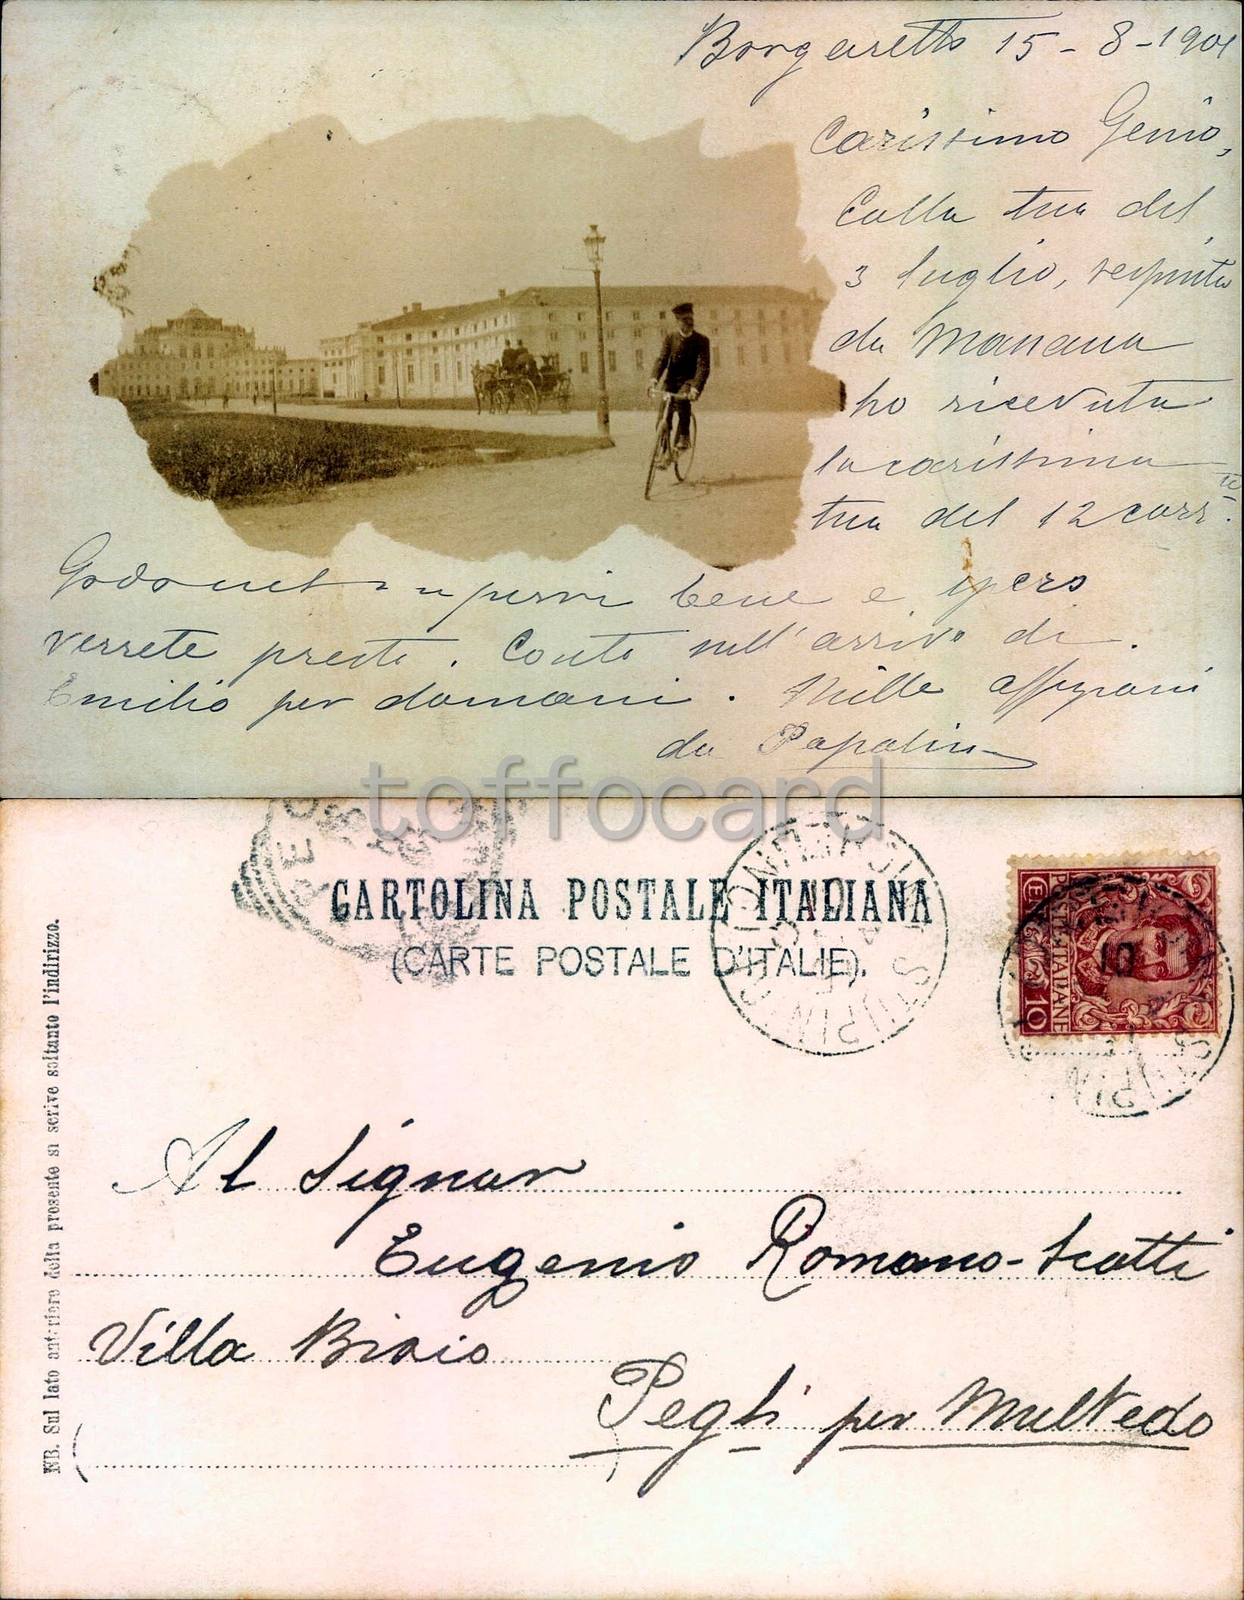 Borgaretto 15-8-1901
Carissimo Genio,
Colla tua del
3 luglio, respinta
da Manana
ho ricevuta
la carissima
tua del 12 corr.te
Godo nel sapervi bene e spero
verrete presto. Conto sull'arrivo di
Emilio per domani. Mille affezioni
da Papalin
toffocard
CARTOLINA POSTALE ITALIANA
(CARTE POSTALE D'ITALIE).
NB. Sul lato anteriore della presente si scrive soltanto l'indirizzo.
STUPINIGI
POSTE ITALIANE
10
Al Signor
Eugenio Romano-Scotti
Villa Bisio
Pegli per Multedo